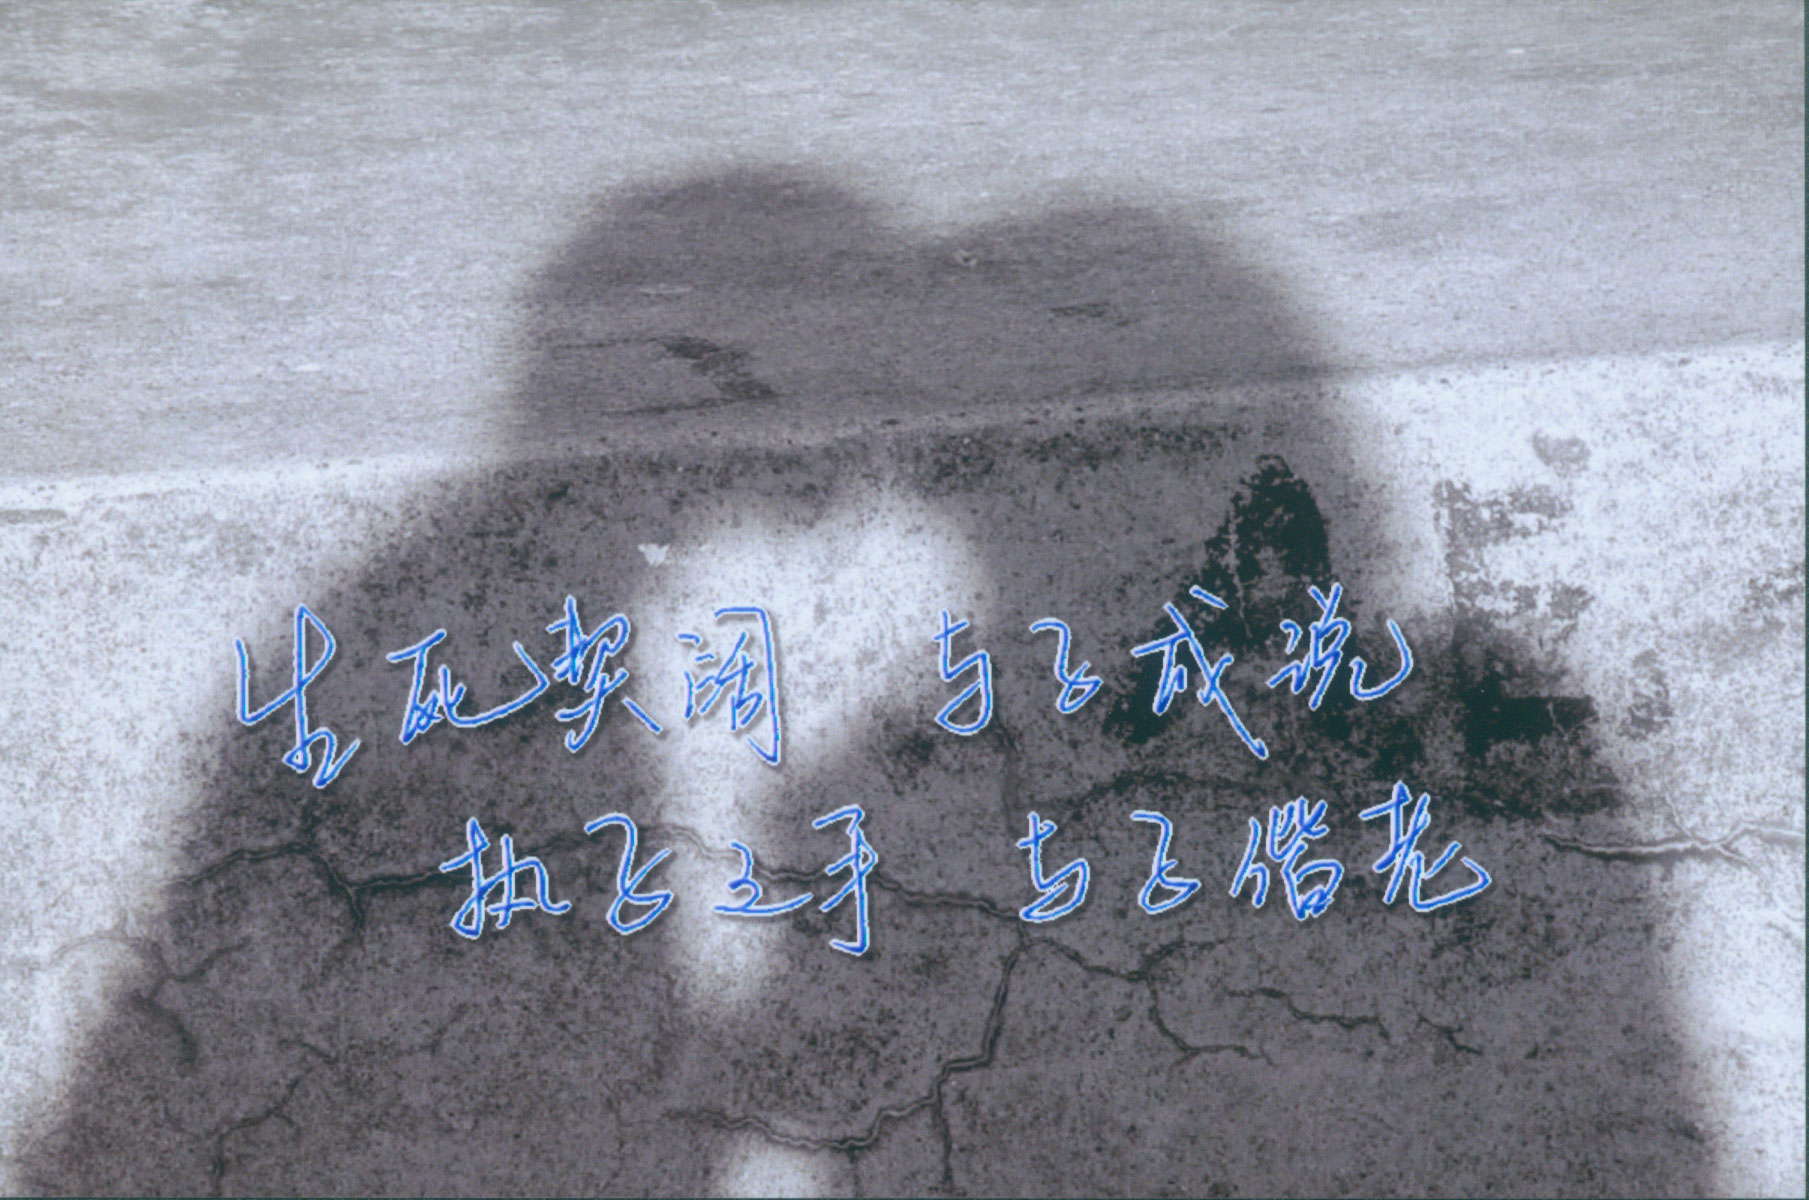 生死契阔 与子成说
执子之手 与子偕老